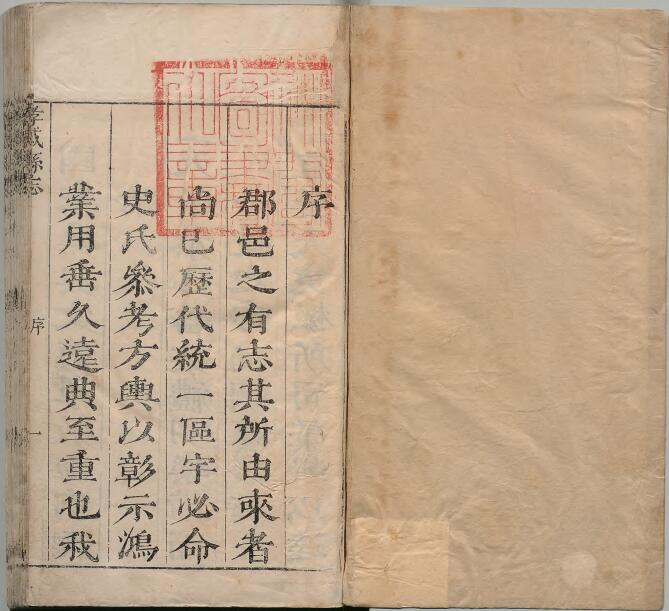 序
郡邑之有志其所由來者
尚已歷代統一區宇必命
史氏參考方輿以彰示鴻
業用垂久遠典至重也我
孝感縣志
序
一